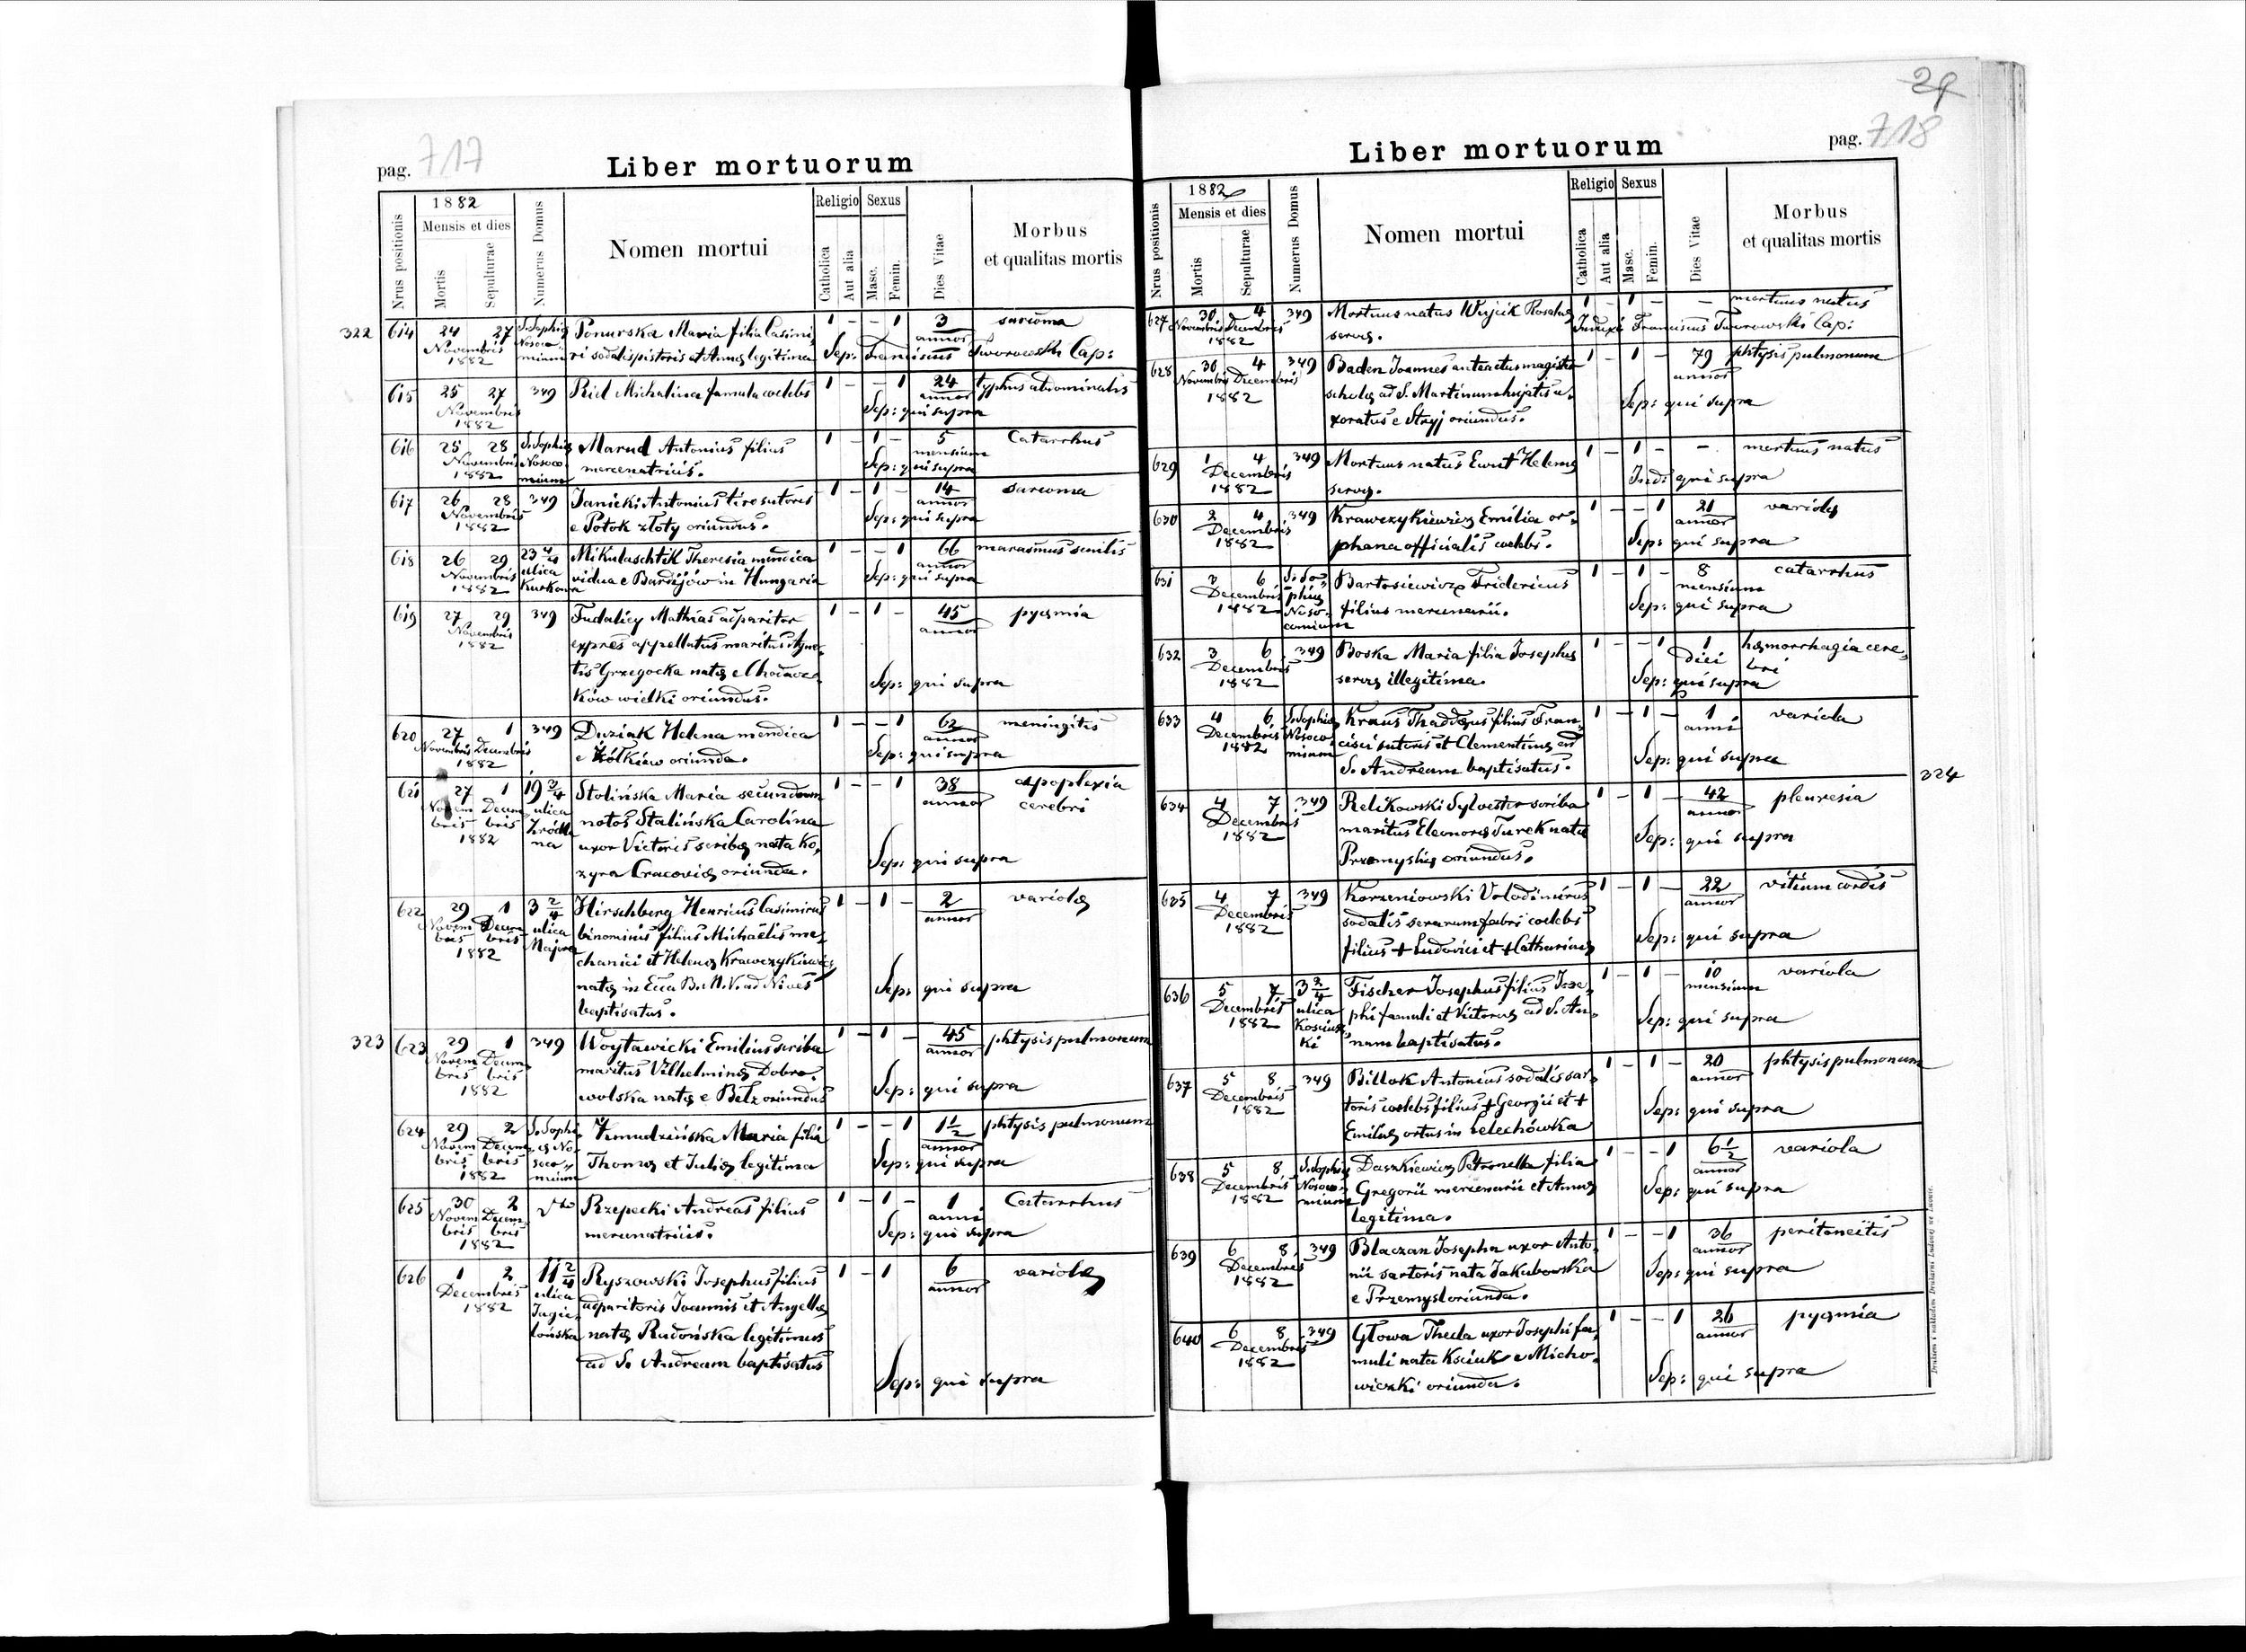 pag. 717
Liber mortuorum
Nrus positionis
1882
Mensis et dies
Mortis
Sepulturae
Numerus Domus
Nomen mortui
Religio
Catholica
Aut alia
Sexus
Masc.
Femin.
Dies Vitae
Morbus
et qualitas mortis
322 614 24 27 S. Sophię Ponurska Maria filia Casimi, 1 – – 1 3 sarcoma
Novembris Nosoco annor
1882 mium ri sodalis pistoris et Annę legitima Sep: Franciscus Tworowski Cap:
615 25 27 349 Ried Michalina famula coelebs 1 – – 1 24 typhus abdominalis
Novembris annor
1882 Sep: qui supra
616 25 28 S. Sophię Marud Antonius filius 1 – 1 – 5 Catarrhus
Novembris Nosoco mensium
1882 mium mercenatricis. Sep: qui supra
617 26 28 349 Janicki Antonius tiro sutoris 1 – 1 – 14 sarcoma
Novembris annor
1882 e Potok złoty oriundus. Sep: qui supra
618 26 29 23 4/4 Mikulaschtik Theresia mendica 1 – – 1 66 marasmus senilis
Novembris ulica annor
1882 Kurkowa vidua e Bardyjów in Hungaria Sep: qui supra
619 27 29 349 Fudaliey Mathias adparitor 1 – 1 – 45 pyęmia
Novembris annor
1882 expres appellatus maritus Agne,
tis Grzegocka natę e
ków wielki oriundus. Sep: qui supra
620 27 1 349 Duziak Helena mendica 1 – – 1 62 meningitis
Novembris Decembris annor
1882 e Żółkiew oriunda. Sep: qui supra
621 27 1 19 3/4 Stolińska Maria secundum 1 – – 1 38 apoplexia
Novem Decem ulica annor cerebri
bris bris Źródla natos Stalińska Carolina
1882 na uxor Victoris scribę nata Ko,
zyra Cracovię oriunda. Sep: qui supra
622 29 1 3 2/4 Hirschberg Henricus Casimirus 1 – 1 – 2 variolę
Novem Decem ulica annor
bris bris Majera binominis filius Michaëlis me,
1882 chanici et Helenę Krawczykiewicz
natę in Ecca B. M. V. ad Nives Sep: qui supra
baptisatus.
323 623 29 1 349 Woytawicki Emilius scriba 1 – 1 – 45 phtysis pulmonum
Novem Decem annor
bris bris maritus Vilhelminę Dobro,
1882 wolska natę e Bełz oriundus Sep: qui supra
624 29 2 S. Sophi, Żmudzińska Maria filia 1 – – 1 1 1/2 phtysis pulmonum
Novem Decem ę No annor
bris bris soco Thomę et Julię legitima Sep: qui supra
1882 mium
625 30 2 dto Rzepecki Andreas filius 1 – 1 – 1 Catarrhus
Novem Decem anni
bris bris mercenatricis. Sep: qui supra
1882
626 1 2 11 2/4 Ryszowski Josephus filius 1 – 1 6 variolę
Decembris ulica annor
1882 Jagie, adparitoris Joannis et Angellę
lońska natę Rudońska legitimus
ad S. Andream baptisatus
Sep: qui supra
29
pag. 718
Liber mortuorum
Nrus positionis
1882
Mensis et dies
Mortis
Sepulturae
Numerus Domus
Nomen mortui
Religio
Catholica
Aut alia
Sexus
Masc.
Femin.
Dies Vitae
Morbus
et qualitas mortis
627 30 4 349 Mortuus natus Wujcik Rosalię 1 – 1 – – mortuus natus
Novembris Decembris
1882 servę. Induxi Franciscus Tworowski Cap:
628 30 4 349 Baden Joannes anteactus magister 1 – 1 – 79 phtysis pulmonum
Novembris Decembris annor
1882 scholę ad S. Martinum hujatis u, Sep: qui supra
xoratus e Stryj oriundus.
629 1 4 349 Mortuus natus Ewut Helenę 1 – 1 – – mortuus natus
Decembris
1882 servę. Ind: qui supra
630 2 4 349 Krawczykiewicz Emilia or, 1 – – 1 21 variolę
Decembris annor
1882 phana officialis coelebs. Sep: qui supra
631 3 6 S. So, Bartosiewicz Fridericus 1 – 1 – 8 catarrhus
Decembris phię mensium
1882 Noso, filius mercenarii. Sep: qui supra
comium
632 3 6 349 Boska Maria filia Josephę 1 – – 1 1 hęmorrhagia cere,
Decembris diei bri
1882 servę illegitima. Sep: qui supra
633 4 6 S. Sophię Kraus Thaddęus filius Fran, 1 – 1 – 1 variola
Decembris Nosoco anni
1882 mium cisci sutoris et Clementinę ad
S. Andream baptisatus. Sep: qui supra
324
634 4 7 349 Relikowski Sylvester scriba 1 – 1 – 42 pleuresia
Decembris annor
1882 maritus Eleonorę Turek natę
Przemyślię oriundus. Sep: qui supra
635 4 7 349 Korzeniowski Volodimirus 1 – 1 – 22 vitium cordis
Decembris annor
1882 sodalis serarum fabri coelebs
filius + Ludovici et + Catharinę Sep: qui supra
636 5 7 3 2/4 Fischer Josephus filius Jose, 1 – 1 – 10 variola
Decembris ulica mensium
1882 Kosciusz, phi famuli et Victorię ad S. An,
ki nam baptisatus. Sep: qui supra
637 5 8 349 Billok Antonius sodalis sar, 1 – 1 – 20 phtysis pulmonum
Decembris annor
1882 toris coelebs filius + Georgii et +
Emilię ortus in Lelechówka Sep: qui supra
638 5 8 S. Sophię Daszkiewicz Petronella filia 1 – – 1 6 1/2 variola
Decembris Nosoco annor
1882 mium Gregorii mercenarii et Annę
legitima. Sep: qui supra
639 6 8 349 Blaczan Josepha uxor Anto, 1 – – 1 36 peritoneitis
Decembris annor
1882 nii sartoris nata Jakubowska
e Przemysl oriunda. Sep: qui supra
640 6 8 349 Głowa Thecla uxor Josephi fa, 1 – – 1 26 pyęmia
Decembris annor
1882 muli nata Ksciuk e Micho,
wiczki oriunda. Sep: qui supra